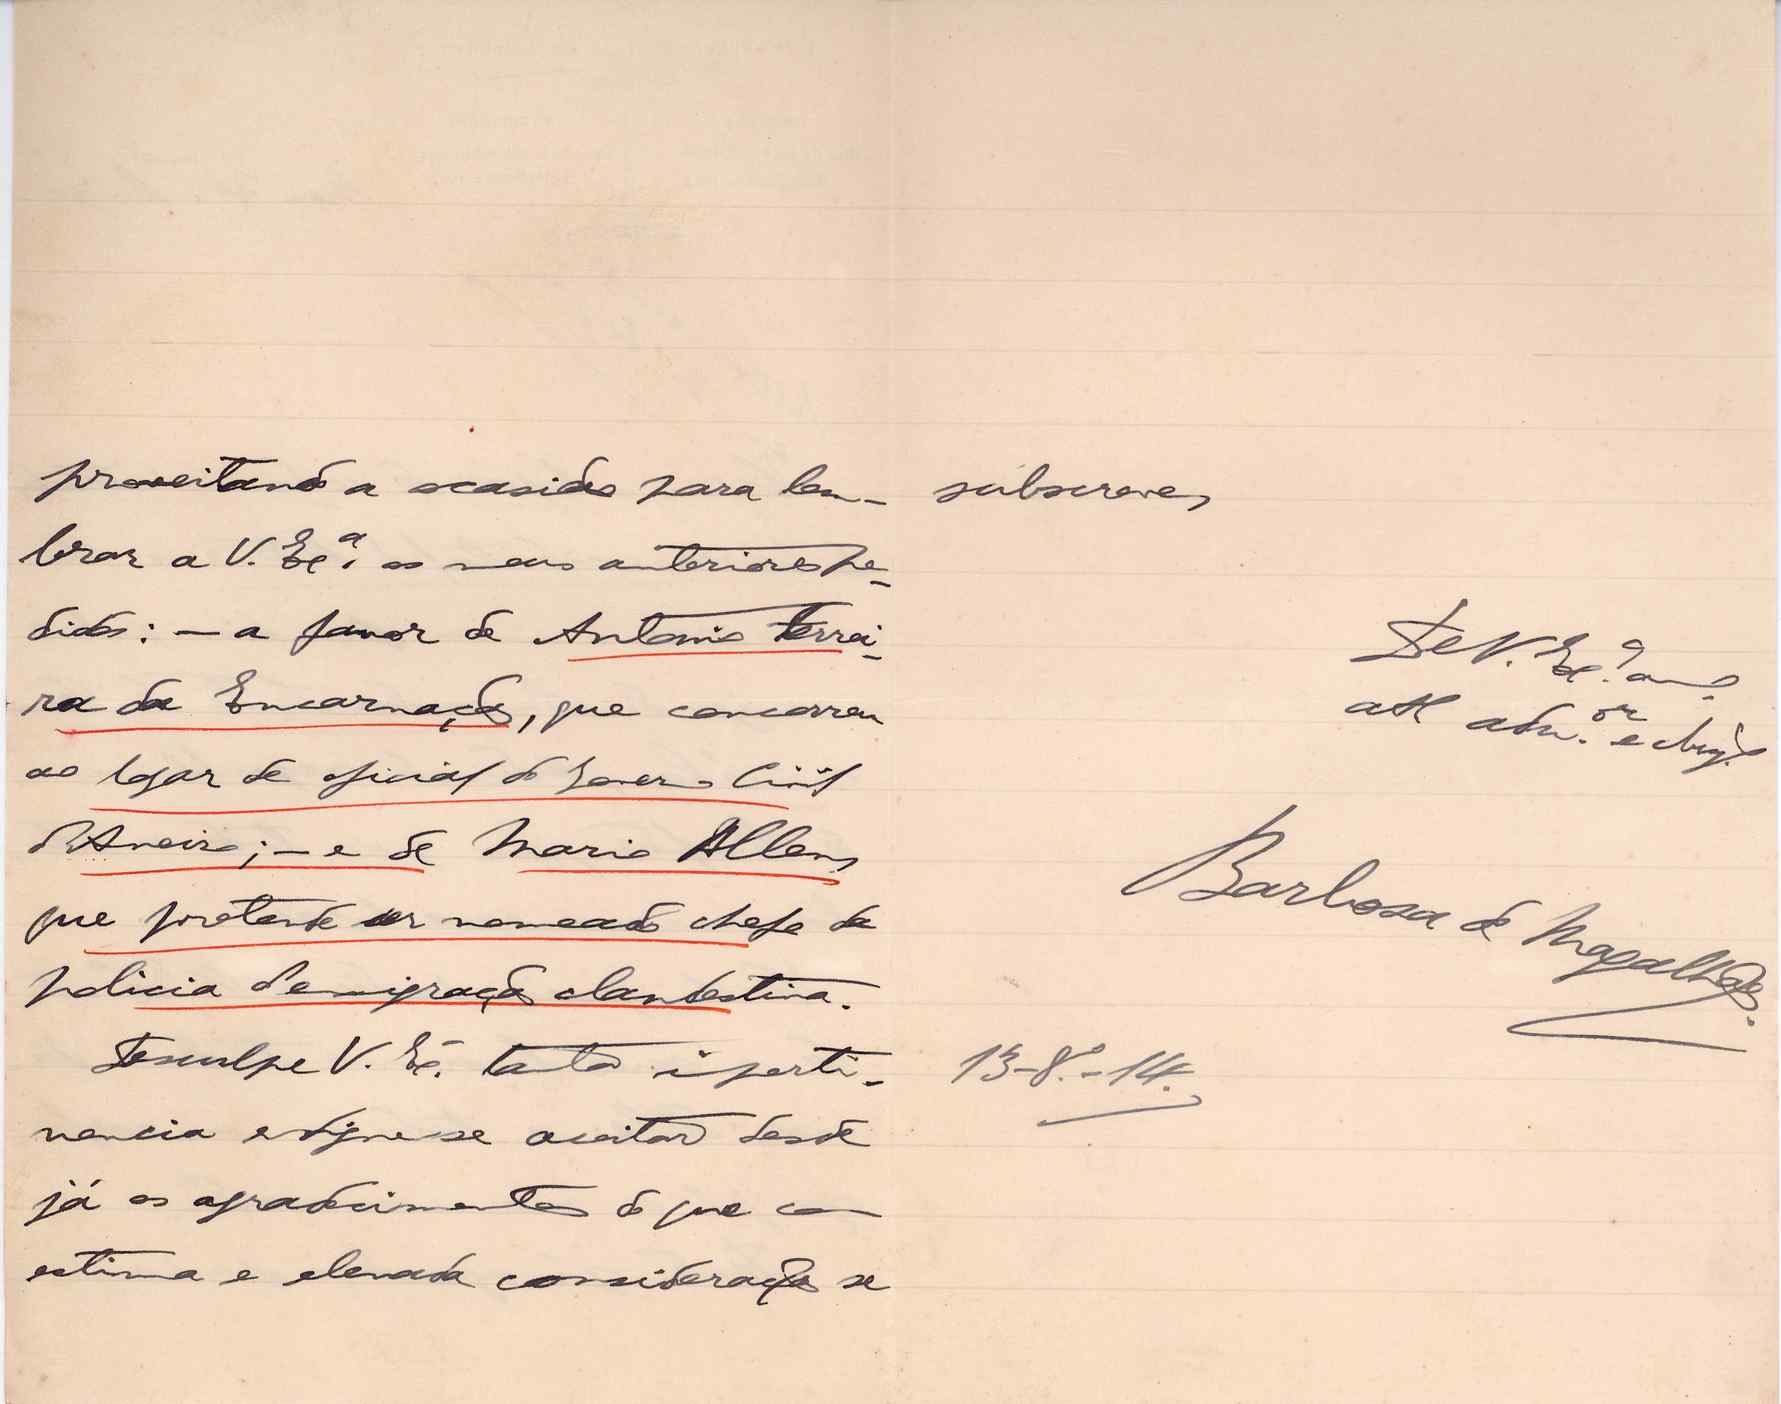 proveitando a ocasião para lem-
brar a V. Exª. os meus anteriores pe-
didos: — a favor de Antonio Ferrei-
ra da Encarnação, que concorreu
ao logar de oficial do Governo Civil
d'Aveiro; — e de Mario Allem,
que pretende ser nomeado chefe da
policia d'emigração clandestina.
Desculpe V. Ex. tanta imperti-
nencia e digne-se aceitar desde
já os agradecimentos do que com
estima e elevada consideração se
subscreve,
De V. Exª. amº
attº adm.or e obrigº
Barbosa de Magalhães.
13-8º-14.